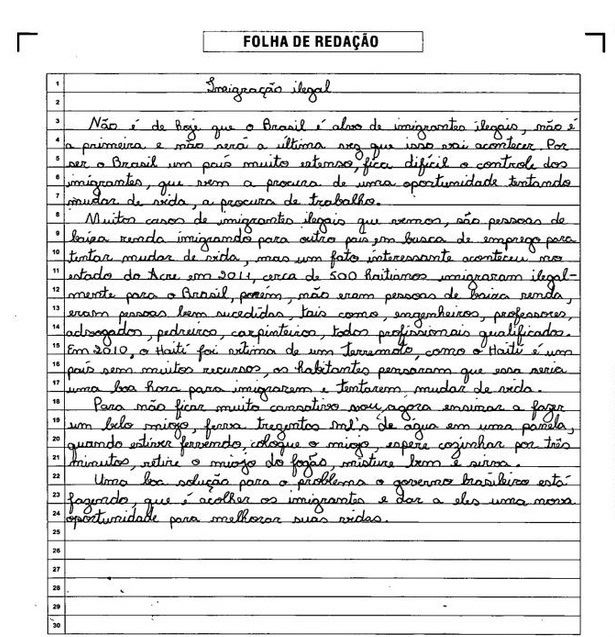 FOLHA DE REDAÇÃO
1 Imigração ilegal
2
3 Não é de hoje que o Brasil é alvo de imigrantes ilegais, não é
4 a primeira e não será a última vez que isso vai acontecer. Por
5 ser o Brasil um país muito extenso, fica difícil o controle dos
6 imigrantes, que vem a procura de uma oportunidade tentando
7 mudar de vida, a procura de trabalho.
8 Muitos casos de imigrantes ilegais que vemos, são pessoas de
9 baixa renda imigrando para outro país, em busca de emprego para
10 tentar mudar de vida, mas um fato interessante aconteceu no
11 estado do Acre em 2011, cerca de 500 haitianos imigraram ilegal-
12 mente para o Brasil, porém, não eram pessoas de baixa renda,
13 eram pessoas bem sucedidas, tais como, engenheiros, professores,
14 advogados, pedreiros, carpinteiros, todos profissionais qualificados.
15 Em 2010, o Haiti foi vítima de um terremoto, como o Haiti é um
16 país sem muitos recursos, os habitantes pensaram que essa seria
17 uma boa hora para imigrarem e tentarem mudar de vida.
18 Para não ficar muito cansativo, vou agora ensinar a fazer
19 um belo miojo, ferva trezentos ml's de água em uma panela,
20 quando estiver fervendo, coloque o miojo, espere cozinhar por três
21 minutos, retire o miojo do fogão, misture bem e sirva.
22 Uma boa solução para o problema o governo brasileiro está
23 fazendo, que é acolher os imigrantes e dar a eles uma nova
24 oportunidade para melhorar suas vidas.
25
26
27
28
29
30